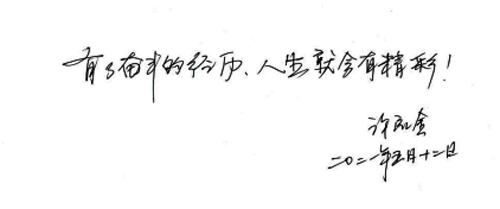 有了奋斗的经历、人生就会有精彩！
许
二〇二一年五月十二日